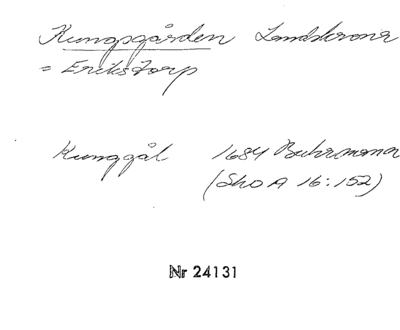 Kungsgården Landskrona
= Erikstorp
Kunggål 1684 Buhrmanna
(Sko A 16:152)
Nr 24131